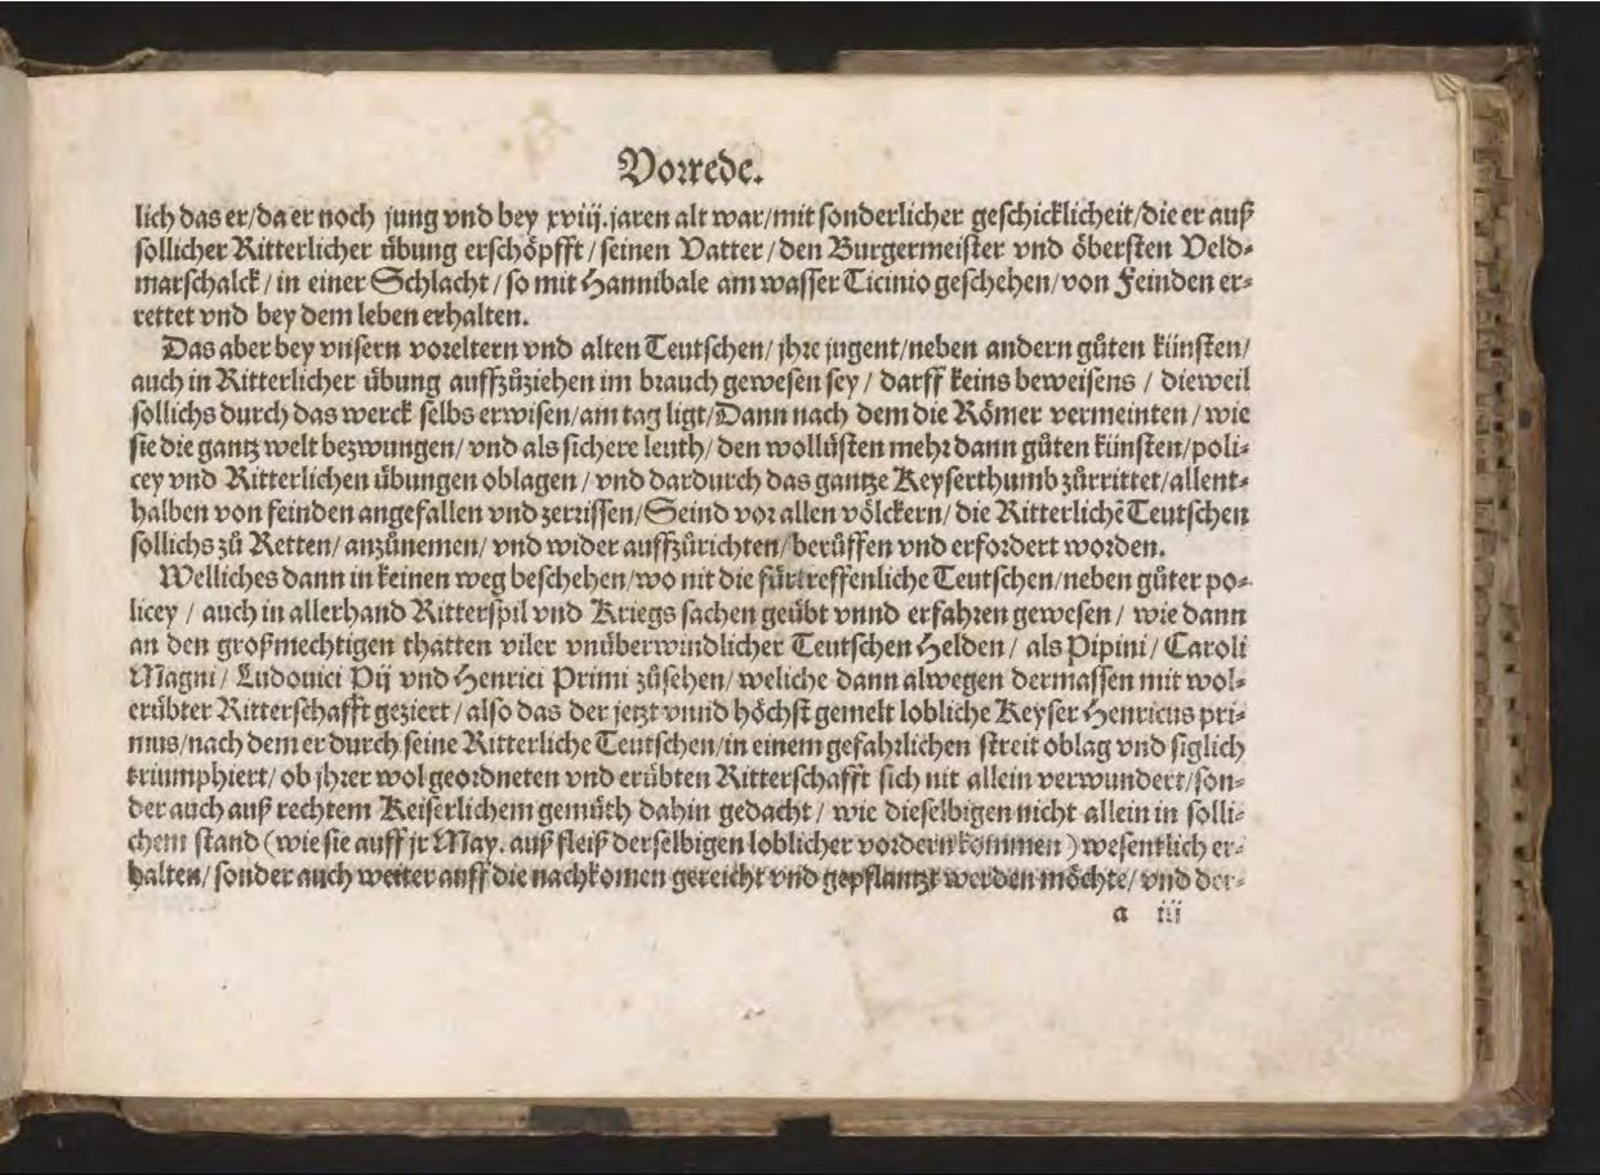 Vorrede.
lich das er/da er noch jung vnd bey xviij.jaren alt war/mit sonderlicher geschicklicheit/die er auß
sollicher Ritterlicher übung erschöpfft/seinen Vatter/den Burgermeister vnd öbersten Veld-
marschalck/in einer Schlacht/so mit Hannibale am wasser Ticinio geschehen/von Feinden er-
rettet vnd bey dem leben erhalten.
Das aber bey vnsern voreltern vnd alten Teutschen/jhre jugent/neben andern gůten künsten/
auch in Ritterlicher übung auffzůziehen im brauch gewesen sey/darff keins beweisens/dieweil
sollichs durch das werck selbs erwisen/am tag ligt/Dann nach dem die Römer vermeinten/wie
sie die gantz welt bezwungen/vnd als sichere leuth/den wollüsten mehr dann gůten künsten/poli-
cey vnd Ritterlichen übungen oblagen/vnd dardurch das gantze Keyserthumb zůrrittet/allent-
halben von feinden angefallen vnd zerrissen/Seind vor allen völckern/die Ritterlichẽ Teutschen
sollichs zů Retten/anzůnemen/vnd wider auffzůrichten/berůffen vnd erfordert worden.
Welliches dann in keinen weg beschehen/wo nit die fürtreffenliche Teutschen/neben gůter po-
licey/auch in allerhand Ritterspil vnd Kriegs sachen geübt vnnd erfahren gewesen/wie dann
an den großmechtigen thatten viler vnüberwindlicher Teutschen Helden/als Pipini/Caroli
Magni/Ludouici Pij vnd Henrici Primi zůsehen/weliche dann alwegen dermassen mit wol-
erübter Ritterschafft geziert/also das der jetzt vnnd höchst gemelt lobliche Keyser Henricus pri-
mus/nach dem er durch seine Ritterliche Teutschen/in einem gefahrlichen streit oblag vnd siglich
triumphiert/ob jhrer wol geordneten vnd erübten Ritterschafft sich nit allein verwundert/son-
der auch auß rechtem Keiserlichem gemüth dahin gedacht/wie dieselbigen nicht allein in solli-
chem stand (wie sie auff jr May. auß fleiß derselbigen loblicher vordern kommen) wesentlich er-
halten/sonder auch weiter auff die nachkomen gereicht vnd gepflantzt werden möchte/vnd der-
a iij